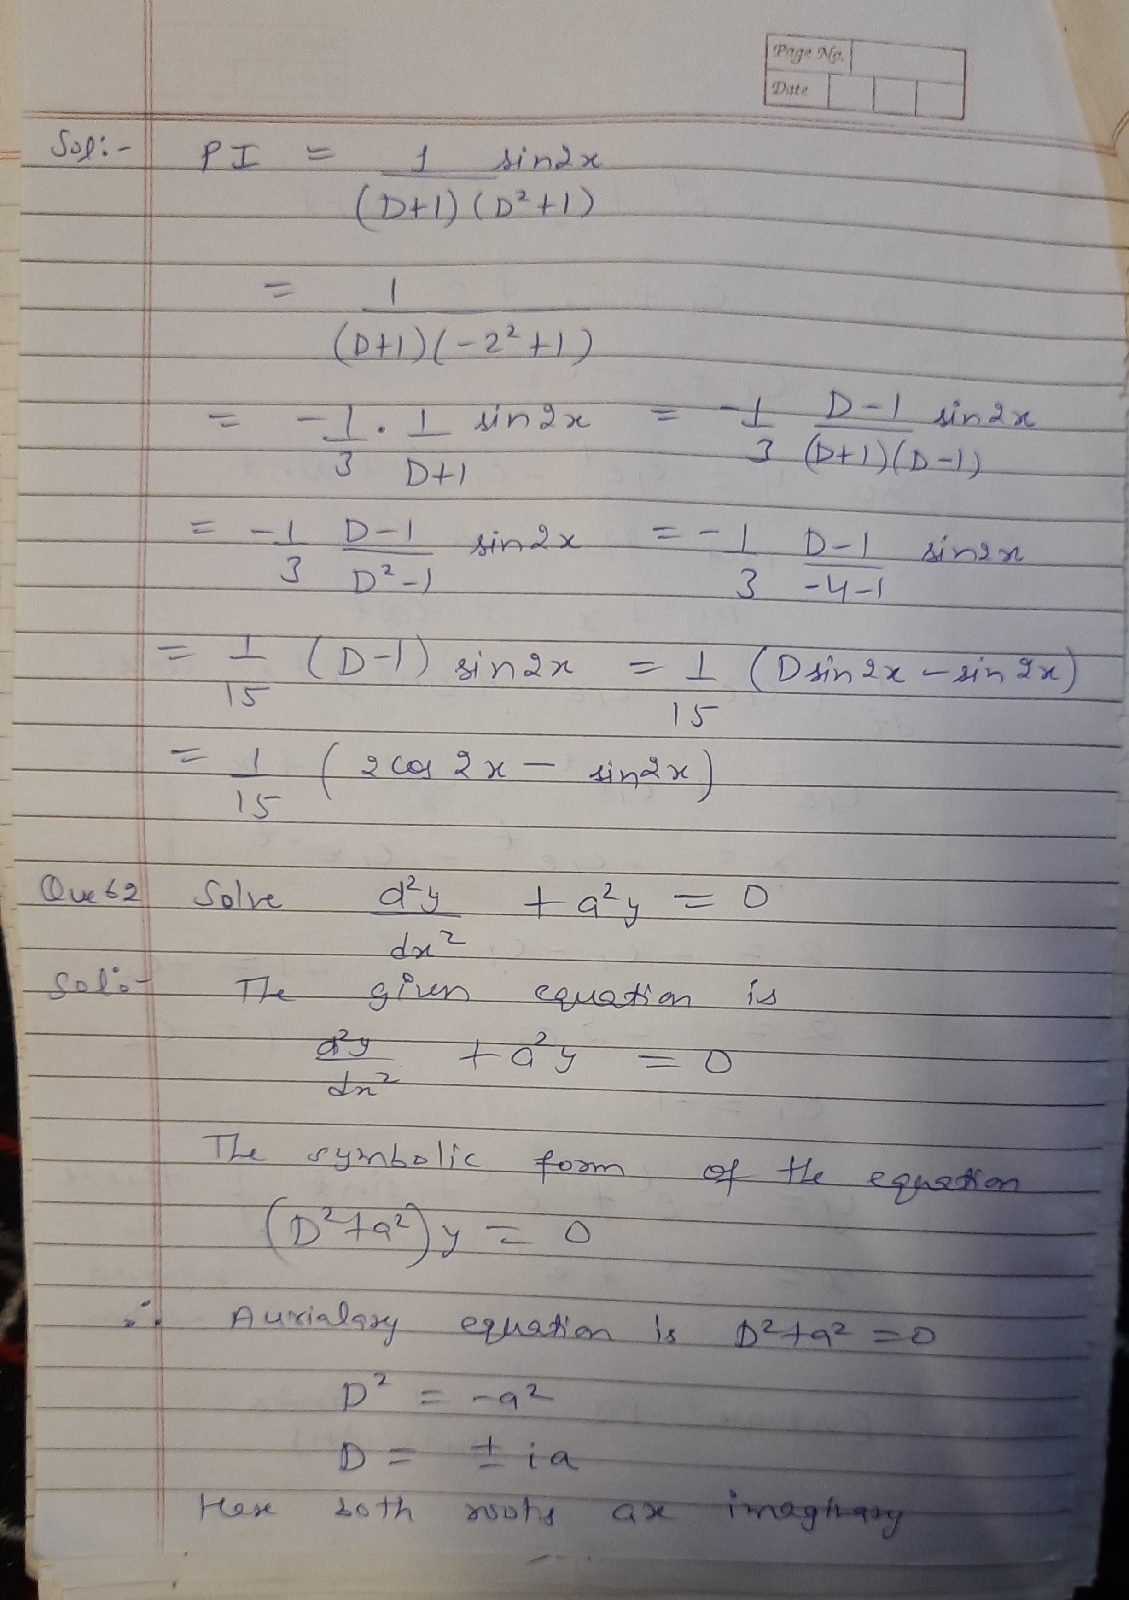 Page No.
Date
Sol:- PI = 1/((D+1)(D²+1)) sin2x
= 1/((D+1)(-2²+1))
= -1/3 . 1/(D+1) sin2x = -1/3 (D-1)/((D+1)(D-1)) sin2x
= -1/3 (D-1)/(D²-1) sin2x = -1/3 (D-1)/(-4-1) sin2x
= 1/15 (D-1) sin2x = 1/15 (D sin2x - sin2x)
= 1/15 (2 cos 2x - sin2x)
Que 62 Solve d²y/dx² + a²y = 0
Sol:- The given equation is
d²y/dx² + a²y = 0
The symbolic form of the equation
(D²+a²)y = 0
∴ Auxialary equation is D²+a² = 0
D² = -a²
D = ± ia
Here both roots are imaginary